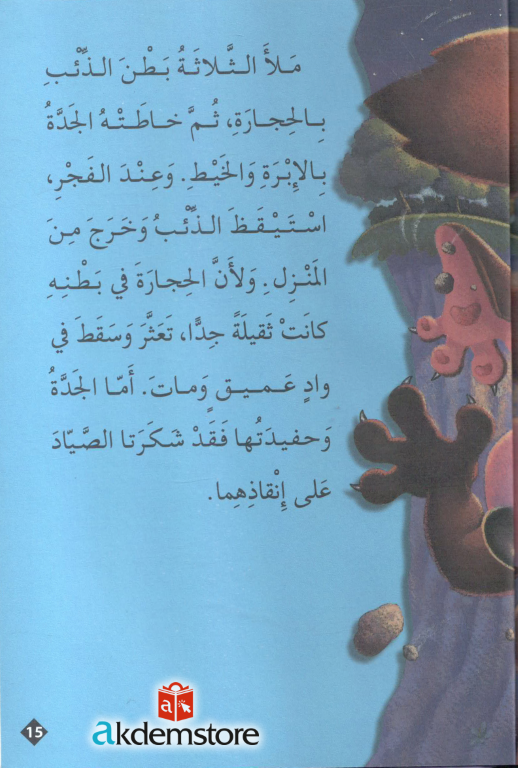 مَـلأَ الـثَّـلاثَـةُ بَـطْـنَ الـذِّئْـبِ
بِـالحِـجـارَةِ، ثُـمَّ خـاطَـتْـهُ الجَـدَّةُ
بِـالإِبْـرَةِ وَالخَـيْـطِ. وَعِـنْـدَ الـفَـجْـرِ،
اسْـتَـيْـقَـظَ الـذِّئْـبُ وَخَـرَجَ مِـنَ
المَنْزِلِ. وَلأَنَّ الحِجارَةَ في بَـطْـنِـهِ
كانَتْ ثَقيلَةً جِدًّا، تَعَثَّرَ وَسَقَطَ في
وادٍ عَـمـيـقٍ وَماتَ. أَمّا الجَدَّةُ
وَحفيدَتُها فَقَدْ شَكَرَتا الصَّيّادَ
عَلى إِنْقاذِهِما.
akdemstore
15